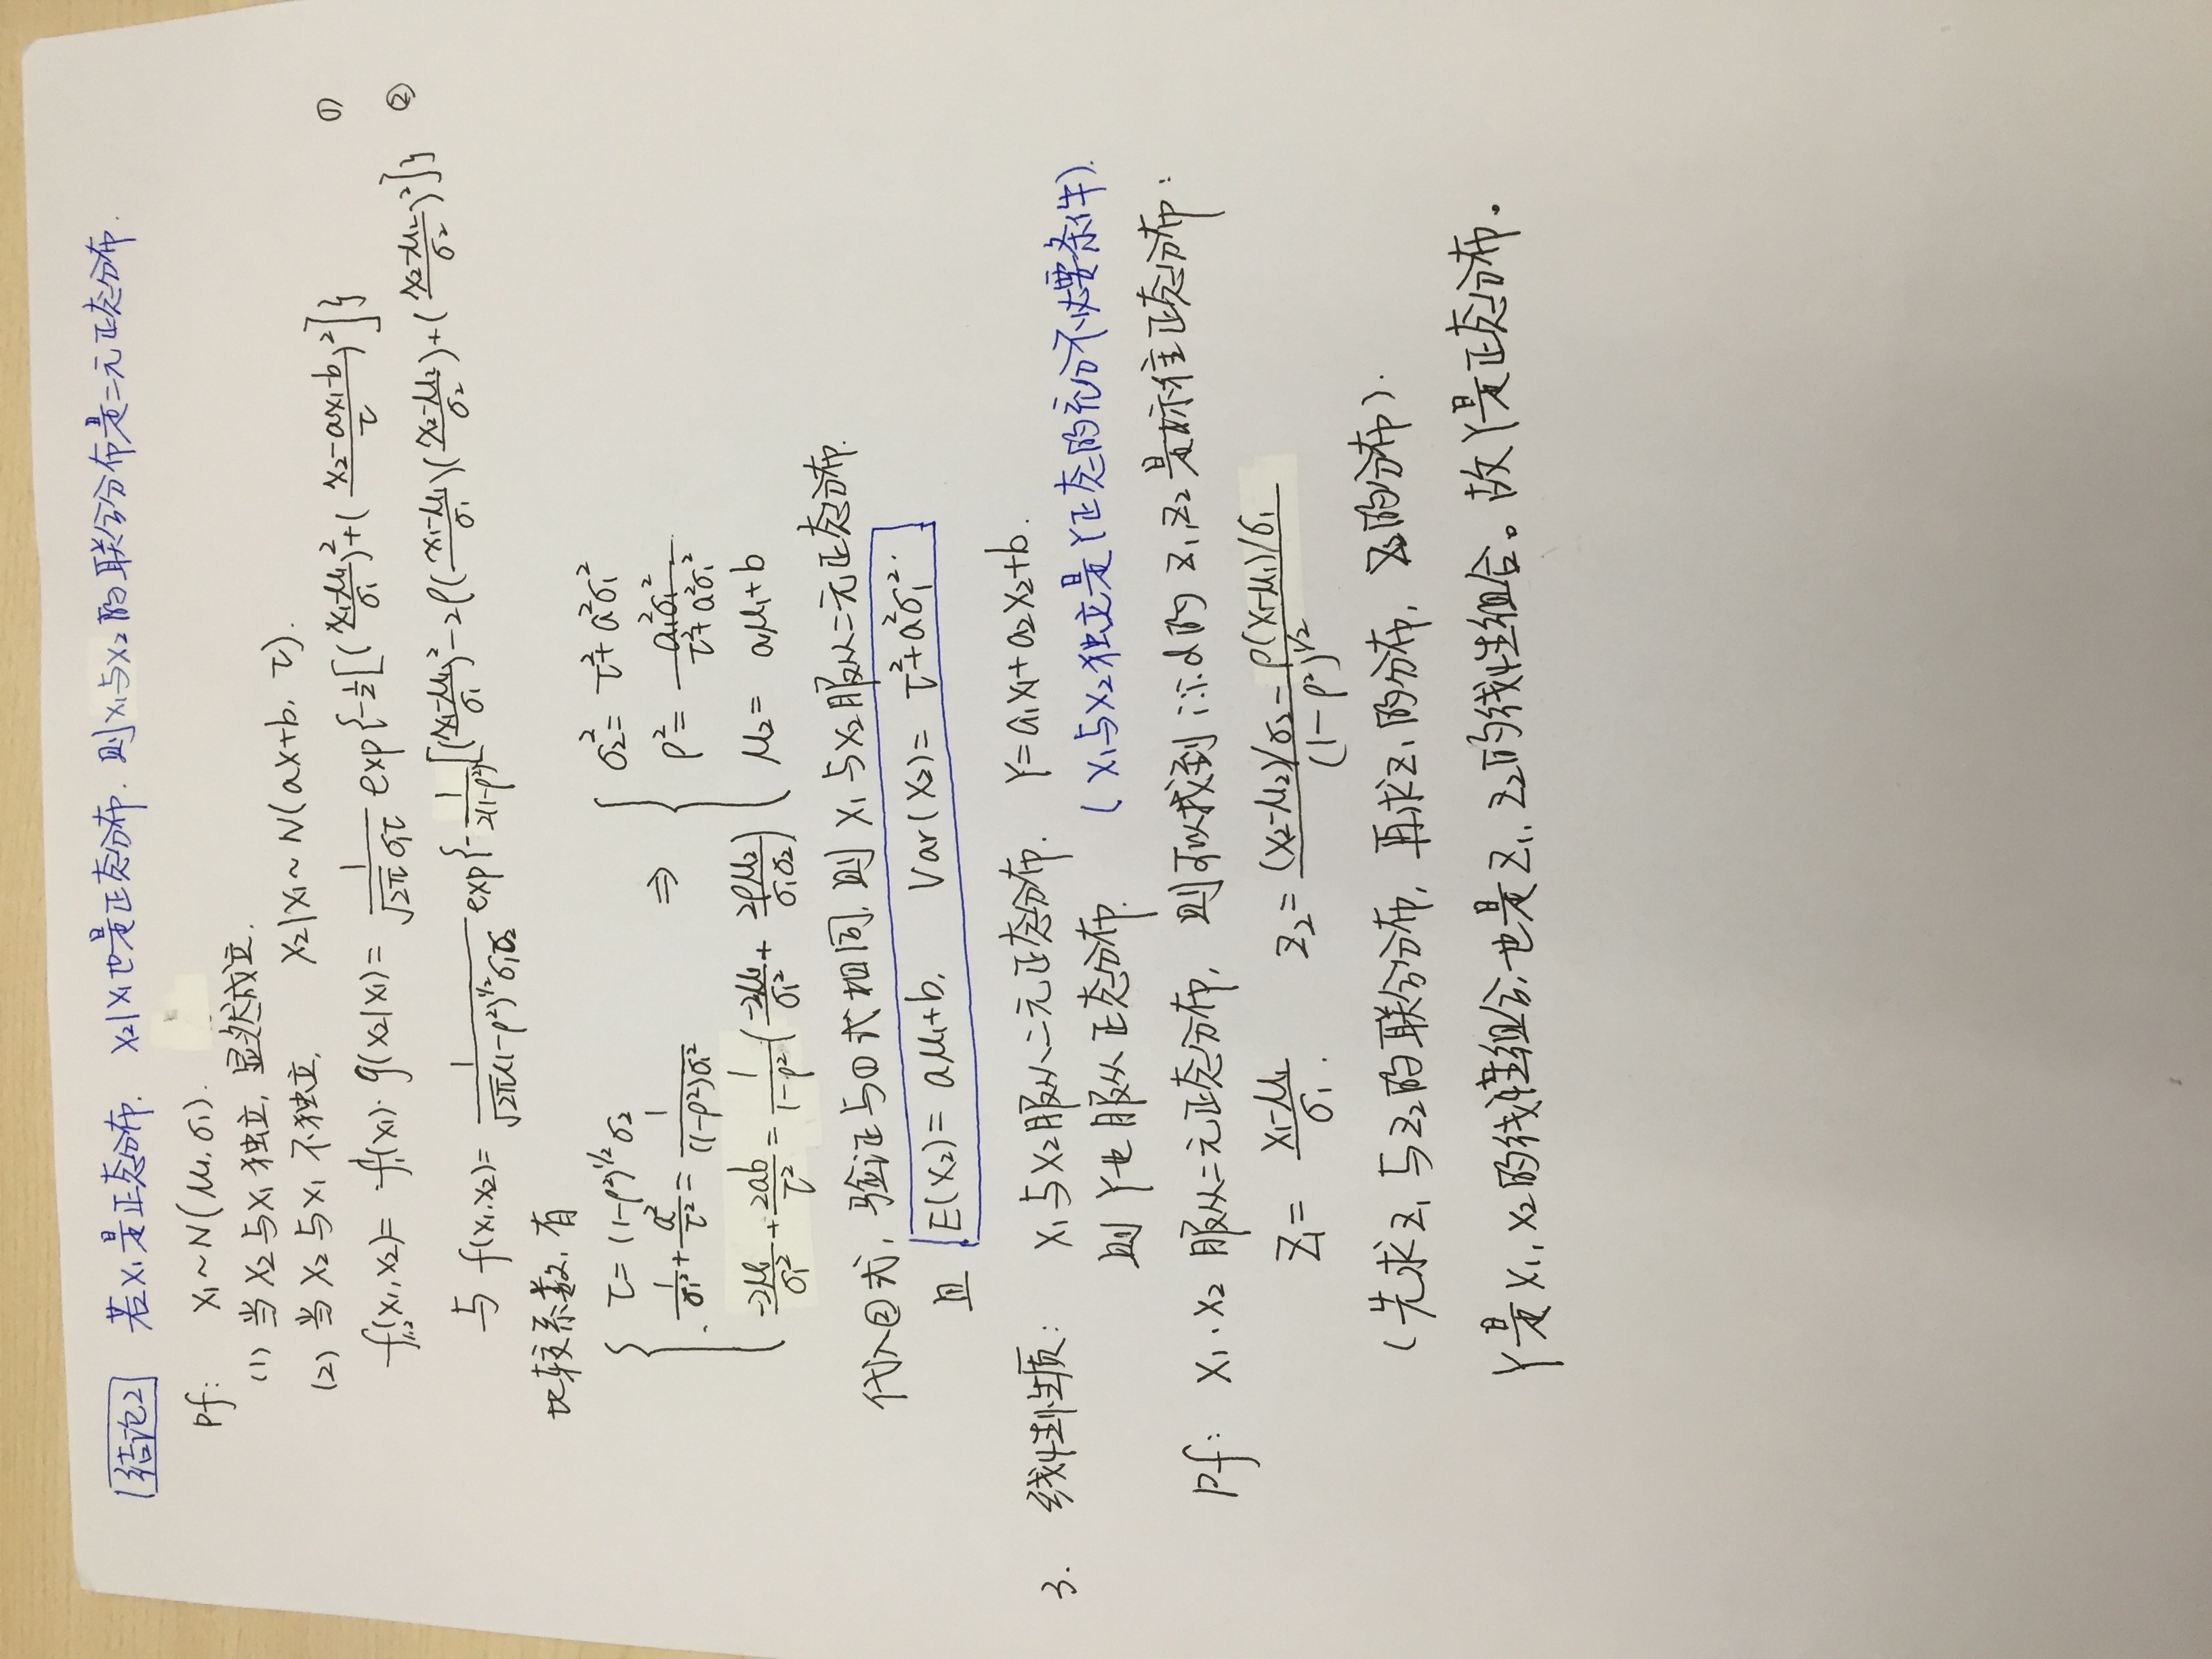 结论2 若X₁是正态分布. X₂|X₁也是正态分布. 则X₁与X₂的联合分布是二元正态分布.
Pf: X₁~N(μ₁, σ₁).
(1) 当X₂与X₁独立, 显然成立.
(2) 当X₂与X₁不独立, X₂|X₁~N(ax+b, τ).
f₁,₂(x₁,x₂)= f₁(x₁)·g(x₂|x₁)= 1/(√2π σ₁τ) exp{-½[((x₁-μ₁)/σ₁)²+((x₂-ax₁-b)/τ)²]} ①
与 f(x₁,x₂)= 1/(√2π(1-ρ²)^{1/2}σ₁σ₂) exp{-1/(2(1-ρ²))[((x₁-μ₁)/σ₁)²-2ρ((x₁-μ₁)/σ₁)((x₂-μ₂)/σ₂)+((x₂-μ₂)/σ₂)²]} ②
比较系数, 有
τ=(1-ρ²)^{1/2}σ₂ σ₂²= τ²+a²σ₁²
1/σ₁²+a²/τ²=1/((1-ρ²)σ₁²) ⇒ ρ²= a₁²σ₁²/(τ²+a²σ₁²)
-2μ₁/σ₁²+2ab/τ²=1/(1-ρ²)(-2μ₁/σ₁²+2ρμ₂/(σ₁σ₂)) μ₂= aμ₁+b
代入②式, 验证与①式相同, 则X₁与X₂服从二元正态分布.
且 E(X₂)= aμ₁+b. Var(X₂)= τ²+a²σ₁².
3. 线性性质: X₁与X₂服从二元正态分布. Y=a₁X₁+a₂X₂+b.
则Y也服从正态分布. (X₁与X₂独立是Y正态的充分不必要条件).
Pf: X₁,X₂ 服从二元正态分布, 则可以找到i.i.d的Z₁,Z₂是标准正态分布:
Z₁= (X₁-μ₁)/σ₁. Z₂= ((X₂-μ₂)/σ₂-ρ(X₁-μ₁)/σ₁)/(1-ρ²)^{1/2}
(先求Z₁与Z₂的联合分布, 再求Z₁的分布, Z₂的分布).
Y是X₁, X₂的线性组合,也是Z₁, Z₂的线性组合。故Y是正态分布。